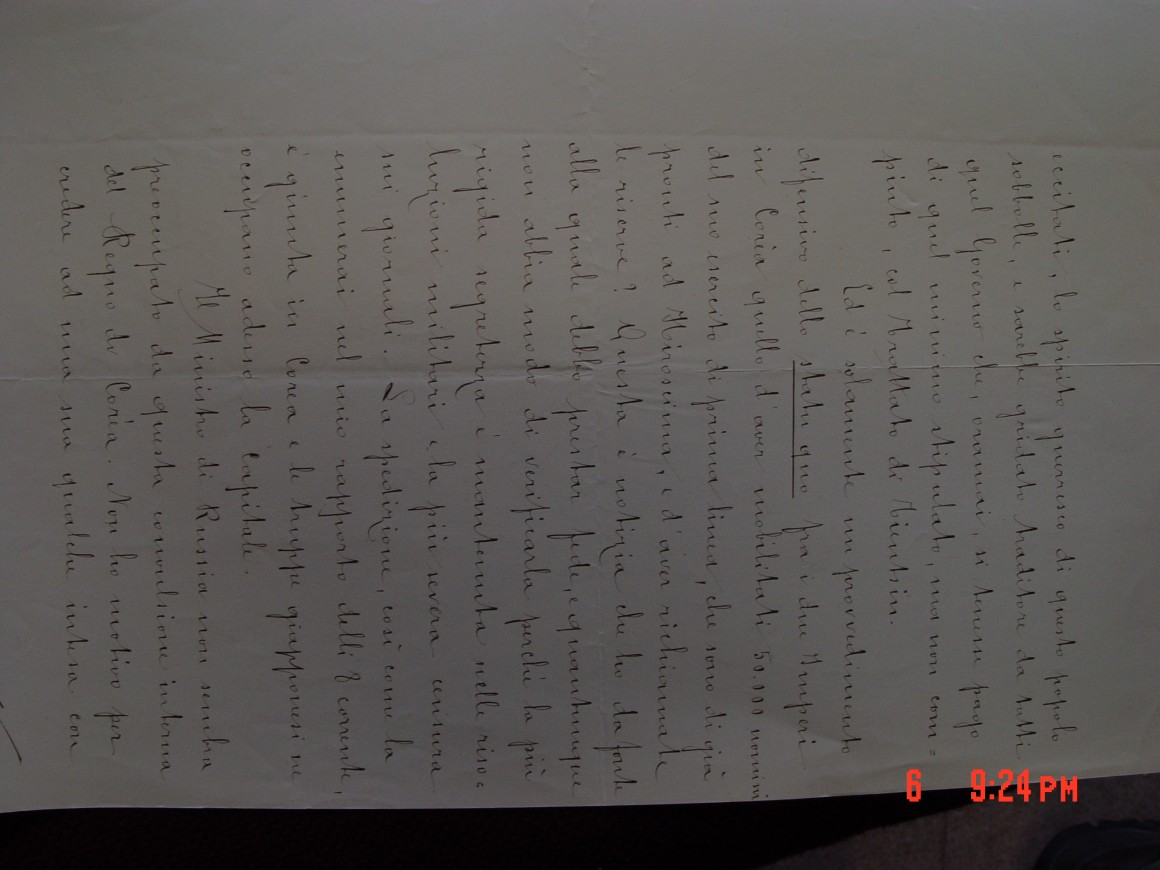 eccitati, lo spirito guerresco di questo popolo
sobbolle, e sarebbe gridato traditore da tutti
quel Governo che, oramai, si tenesse pago
di quel minimo stipulato, ma non com=
piuto, col trattato di Tientsin.
Ed è solamente un provvedimento
difensivo dello statu quo fra i due Imperi
in Corèa quello d'aver mobilitati 50.000 uomini
del suo esercito di prima linea, che sono di già
pronti ad Hiroscima, e d'aver richiamate
le riserve? Questa è notizia che ho da fonte
alla quale debbo prestar fede, e quantunque
non abbia modo di verificarla perchè la più
rigida segretezza è mantenuta nelle riso=
luzioni militari e la più severa censura
sui giornali. La spedizione, così come la
enumerai nel mio rapporto delli 8 corrente,
è giunta in Corea e le truppe giapponesi ne
occupano adesso la capitale.
Il Ministro di Russia non sembra
preoccupato da questa convulsione interna
del Regno di Corèa. Non ho motivo per
credere ad una sua qualche intesa con
6 9:24PM